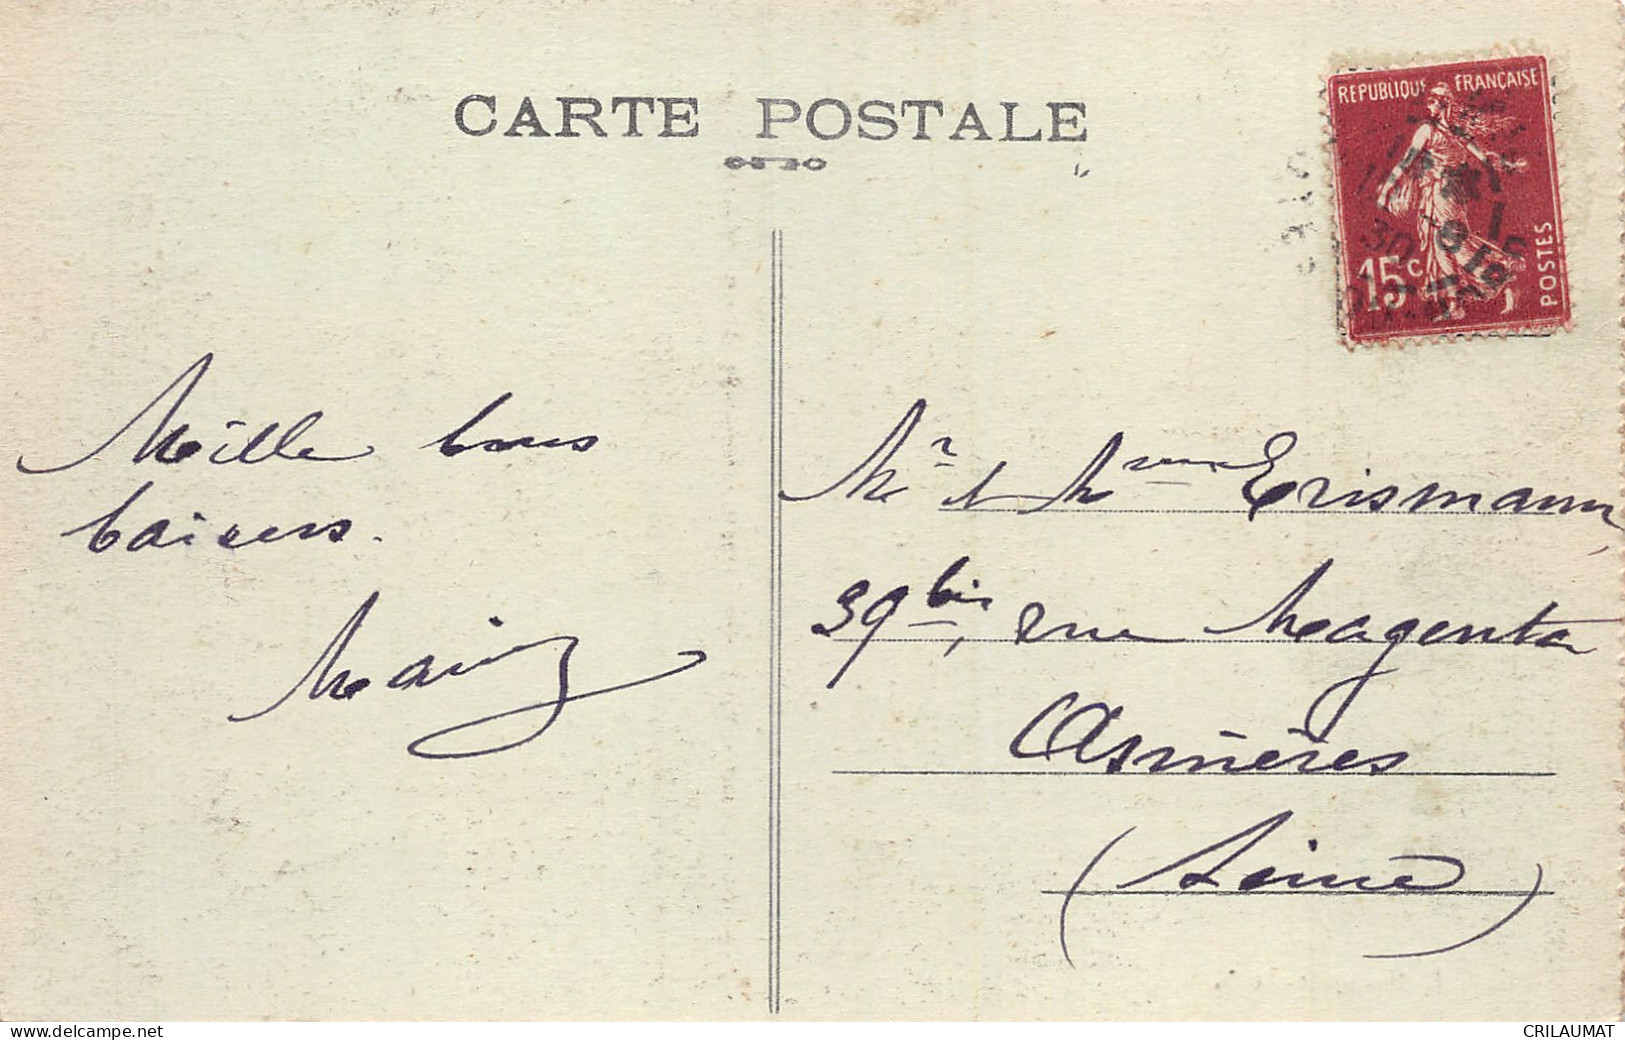 CARTE POSTALE
REPUBLIQUE FRANÇAISE
15c
POSTES
Mille bons
baisers.
Mr et Mme Erismann,
39bis, rue Magenta
Asnières
(Seine)
www.delcampe.net
CRILAUMAT